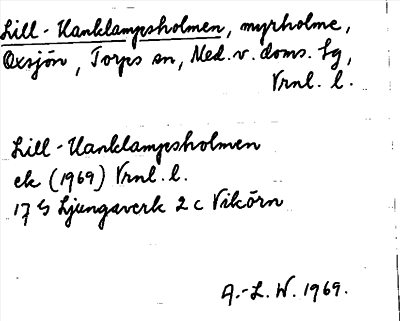 Lill-Hanklampsholmen, myrholme,
Oxsjön, Torps sn, Med. v. doms. Lg,
Vrnl. l.
Lill-Hanklampsholmen
ek (1969) Vrnl. l.
17 G Ljungaverk 2 c Vikörn
A.-L. W. 1969.